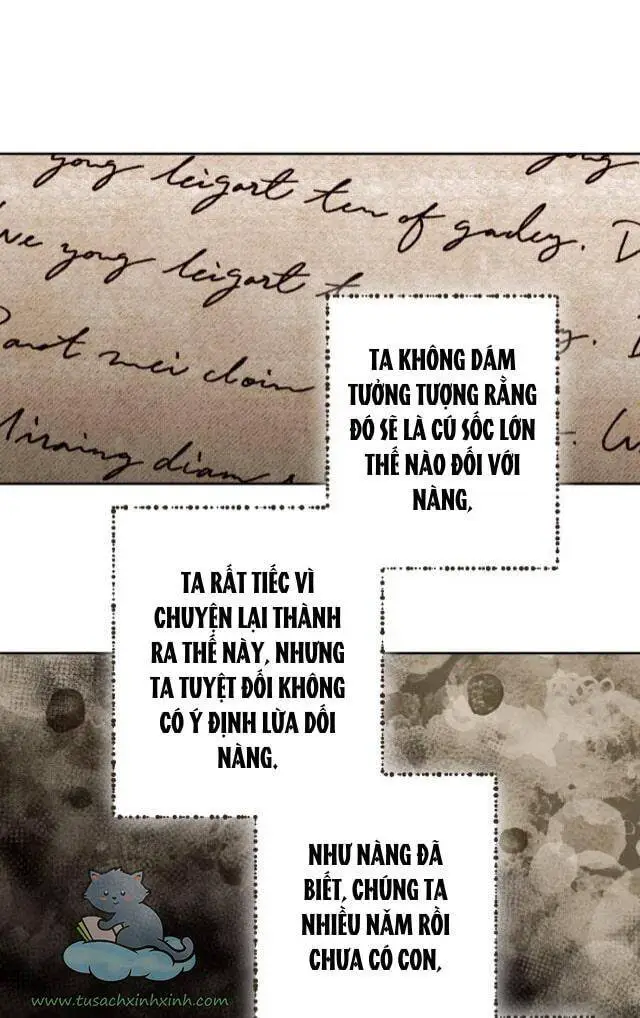 yong leigart ten of gadey. D
ve yong leigart t
TA KHÔNG DÁM
TƯỞNG TƯỢNG RẰNG
ĐÓ SẼ LÀ CÚ SỐC LỚN
THẾ NÀO ĐỐI VỚI
NÀNG,
TA RẤT TIẾC VÌ
CHUYỆN LẠI THÀNH
RA THẾ NÀY, NHƯNG
TA TUYỆT ĐỐI KHÔNG
CÓ Ý ĐỊNH LỪA DỐI
NÀNG.
NHƯ NÀNG ĐÃ
BIẾT, CHÚNG TA
NHIỀU NĂM RỒI
CHƯA CÓ CON,
www.tusachxinhxinh.com